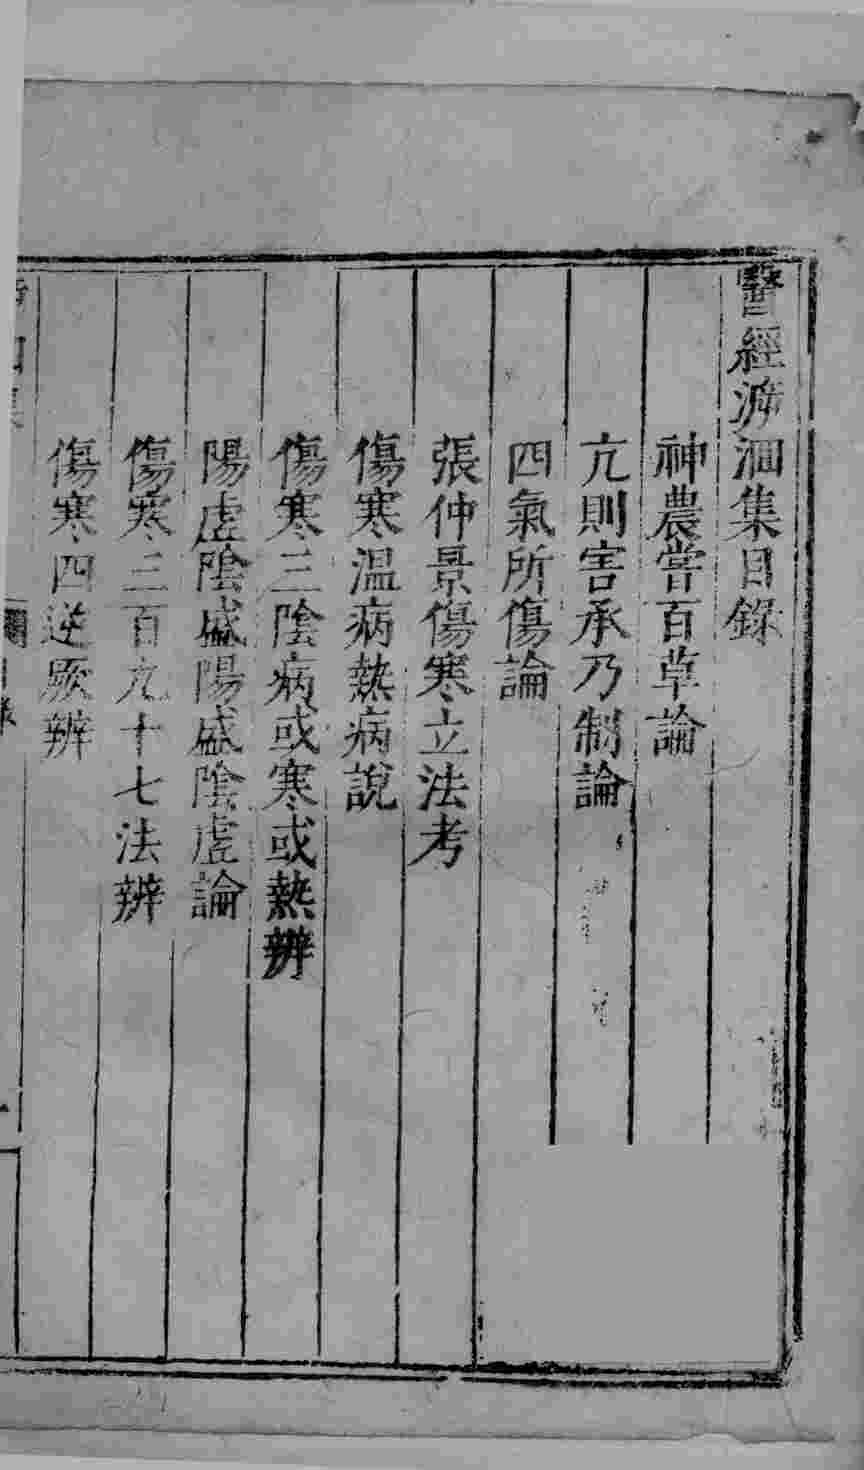 醫經泝洄集目錄
神農嘗百草論
亢則害承乃制論
四氣所傷論
張仲景傷寒立法考
傷寒温病熱病說
傷寒三陰病或寒或熱辨
陽虛陰盛陽盛陰虛論
傷寒三百九十七法辨
傷寒四逆厥辨
目錄